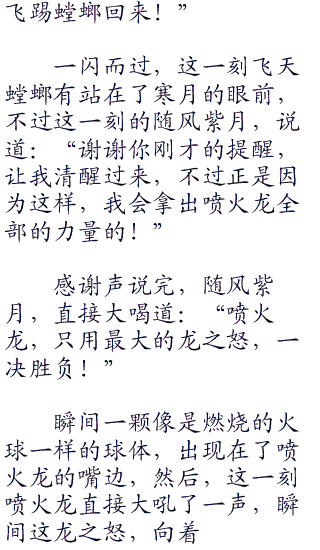 飞踢螳螂回来！”
一闪而过，这一刻飞天
螳螂有站在了寒月的眼前，
不过这一刻的随风紫月，说
道：“谢谢你刚才的提醒，
让我清醒过来，不过正是因
为这样，我会拿出喷火龙全
部的力量的！”
感谢声说完，随风紫
月，直接大喝道：“喷火
龙，只用最大的龙之怒，一
决胜负！”
瞬间一颗像是燃烧的火
球一样的球体，出现在了喷
火龙的嘴边，然后，这一刻
喷火龙直接大吼了一声，瞬
间这龙之怒，向着